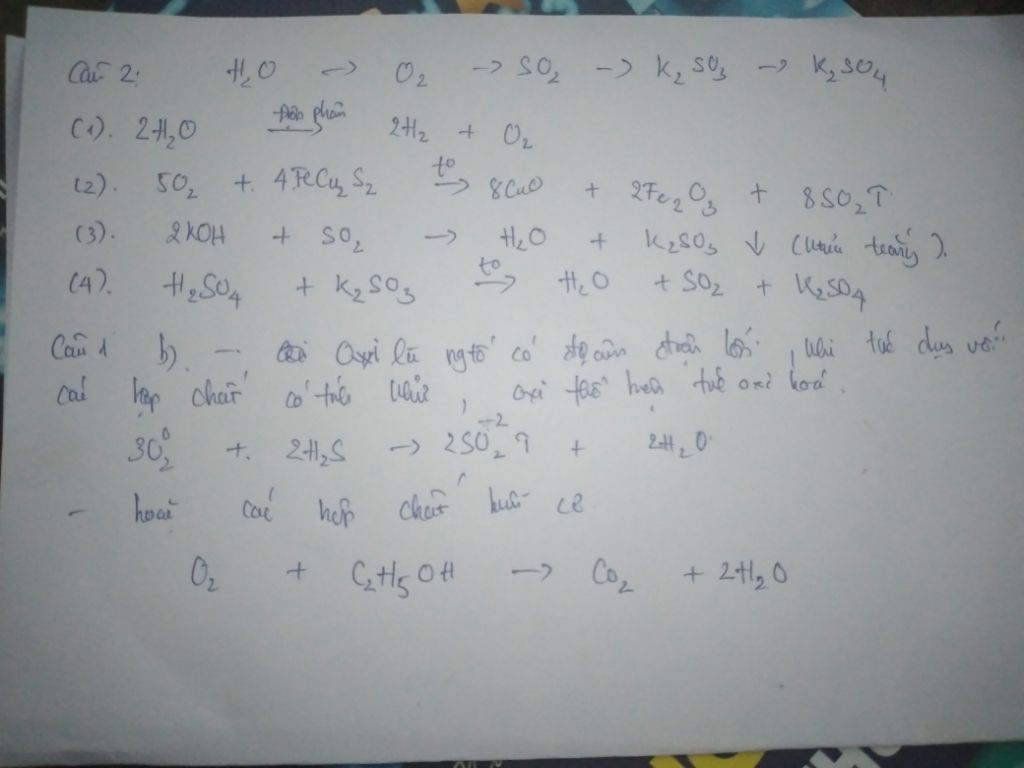 Câu 2: H₂O → O₂ → SO₂ → K₂SO₃ → K₂SO₄
(1). 2H₂O điện phân → 2H₂ + O₂
(2). 5O₂ + 4FeCu₂S₂ t° → 8CuO + 2Fe₂O₃ + 8SO₂↑
(3). 2KOH + SO₂ → H₂O + K₂SO₃ ↓ (trắng).
(4). H₂SO₄ + K₂SO₃ t° → H₂O + SO₂ + K₂SO₄
Câu 1 b). – Oxi là ngtố có độ âm điện lớn, khi tác dụng với
các hợp chất có tính khử, oxi thể hiện tính oxi hoá.
3O₂⁰ + 2H₂S → 2SO₂⁻² ↑ + 2H₂O
– hoặc các hợp chất hữu cơ
O₂ + C₂H₅OH → CO₂ + 2H₂O